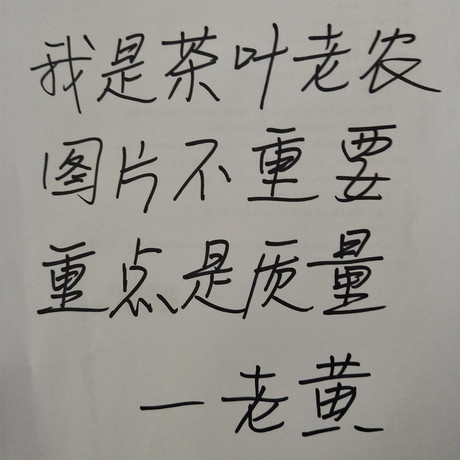 我是茶叶老农
图片不重要
重点是质量
一老黄